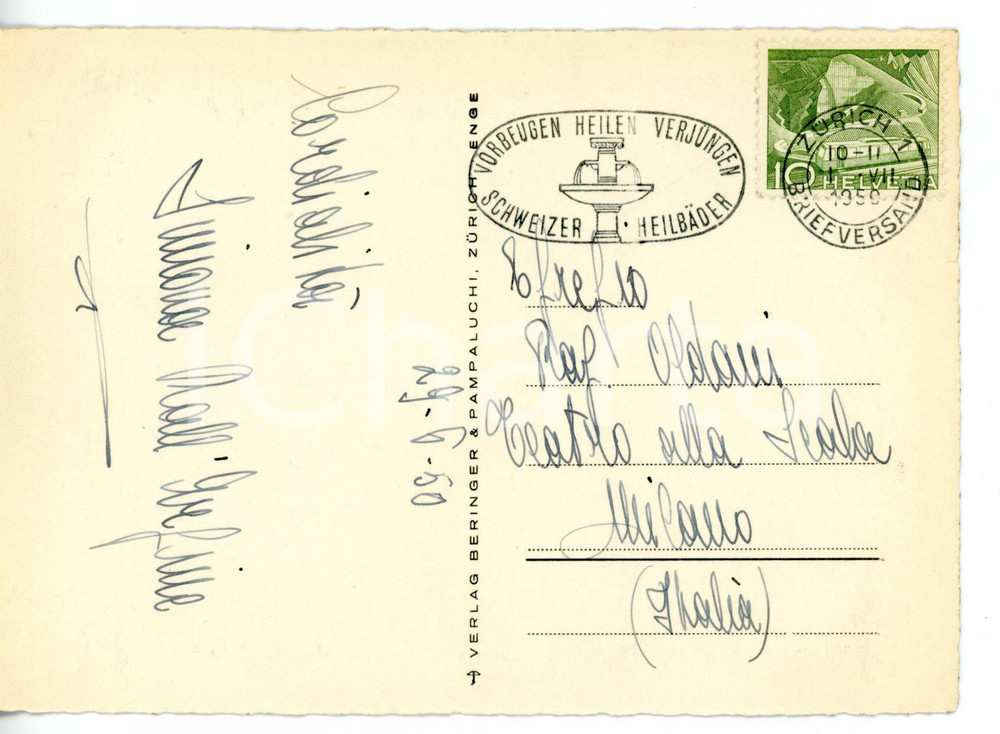 Cordialità
29-6-50
VERLAG BERINGER & PAMPALUCHI, ZÜRICH-ENGE
VORBEUGEN HEILEN VERJÜNGEN
SCHWEIZER HEILBÄDER
ZÜRICH 1
10-11
1. VII
1950
BRIEFVERSAND
10 HELVETIA
Rag. Oldani
Teatro alla Scala
Milano
(Italia)